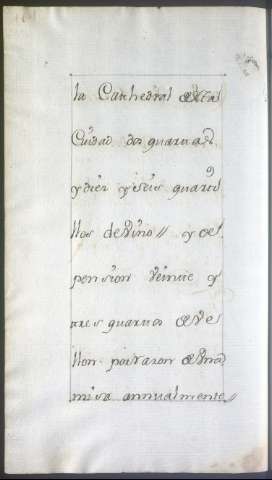 la Cathedral de esta
Ciudad dos quartas
y diez y seis quarti
llos de vino // y de
pension veinte y
tres quartos de ve
llon por razon de una
misa annualmente //